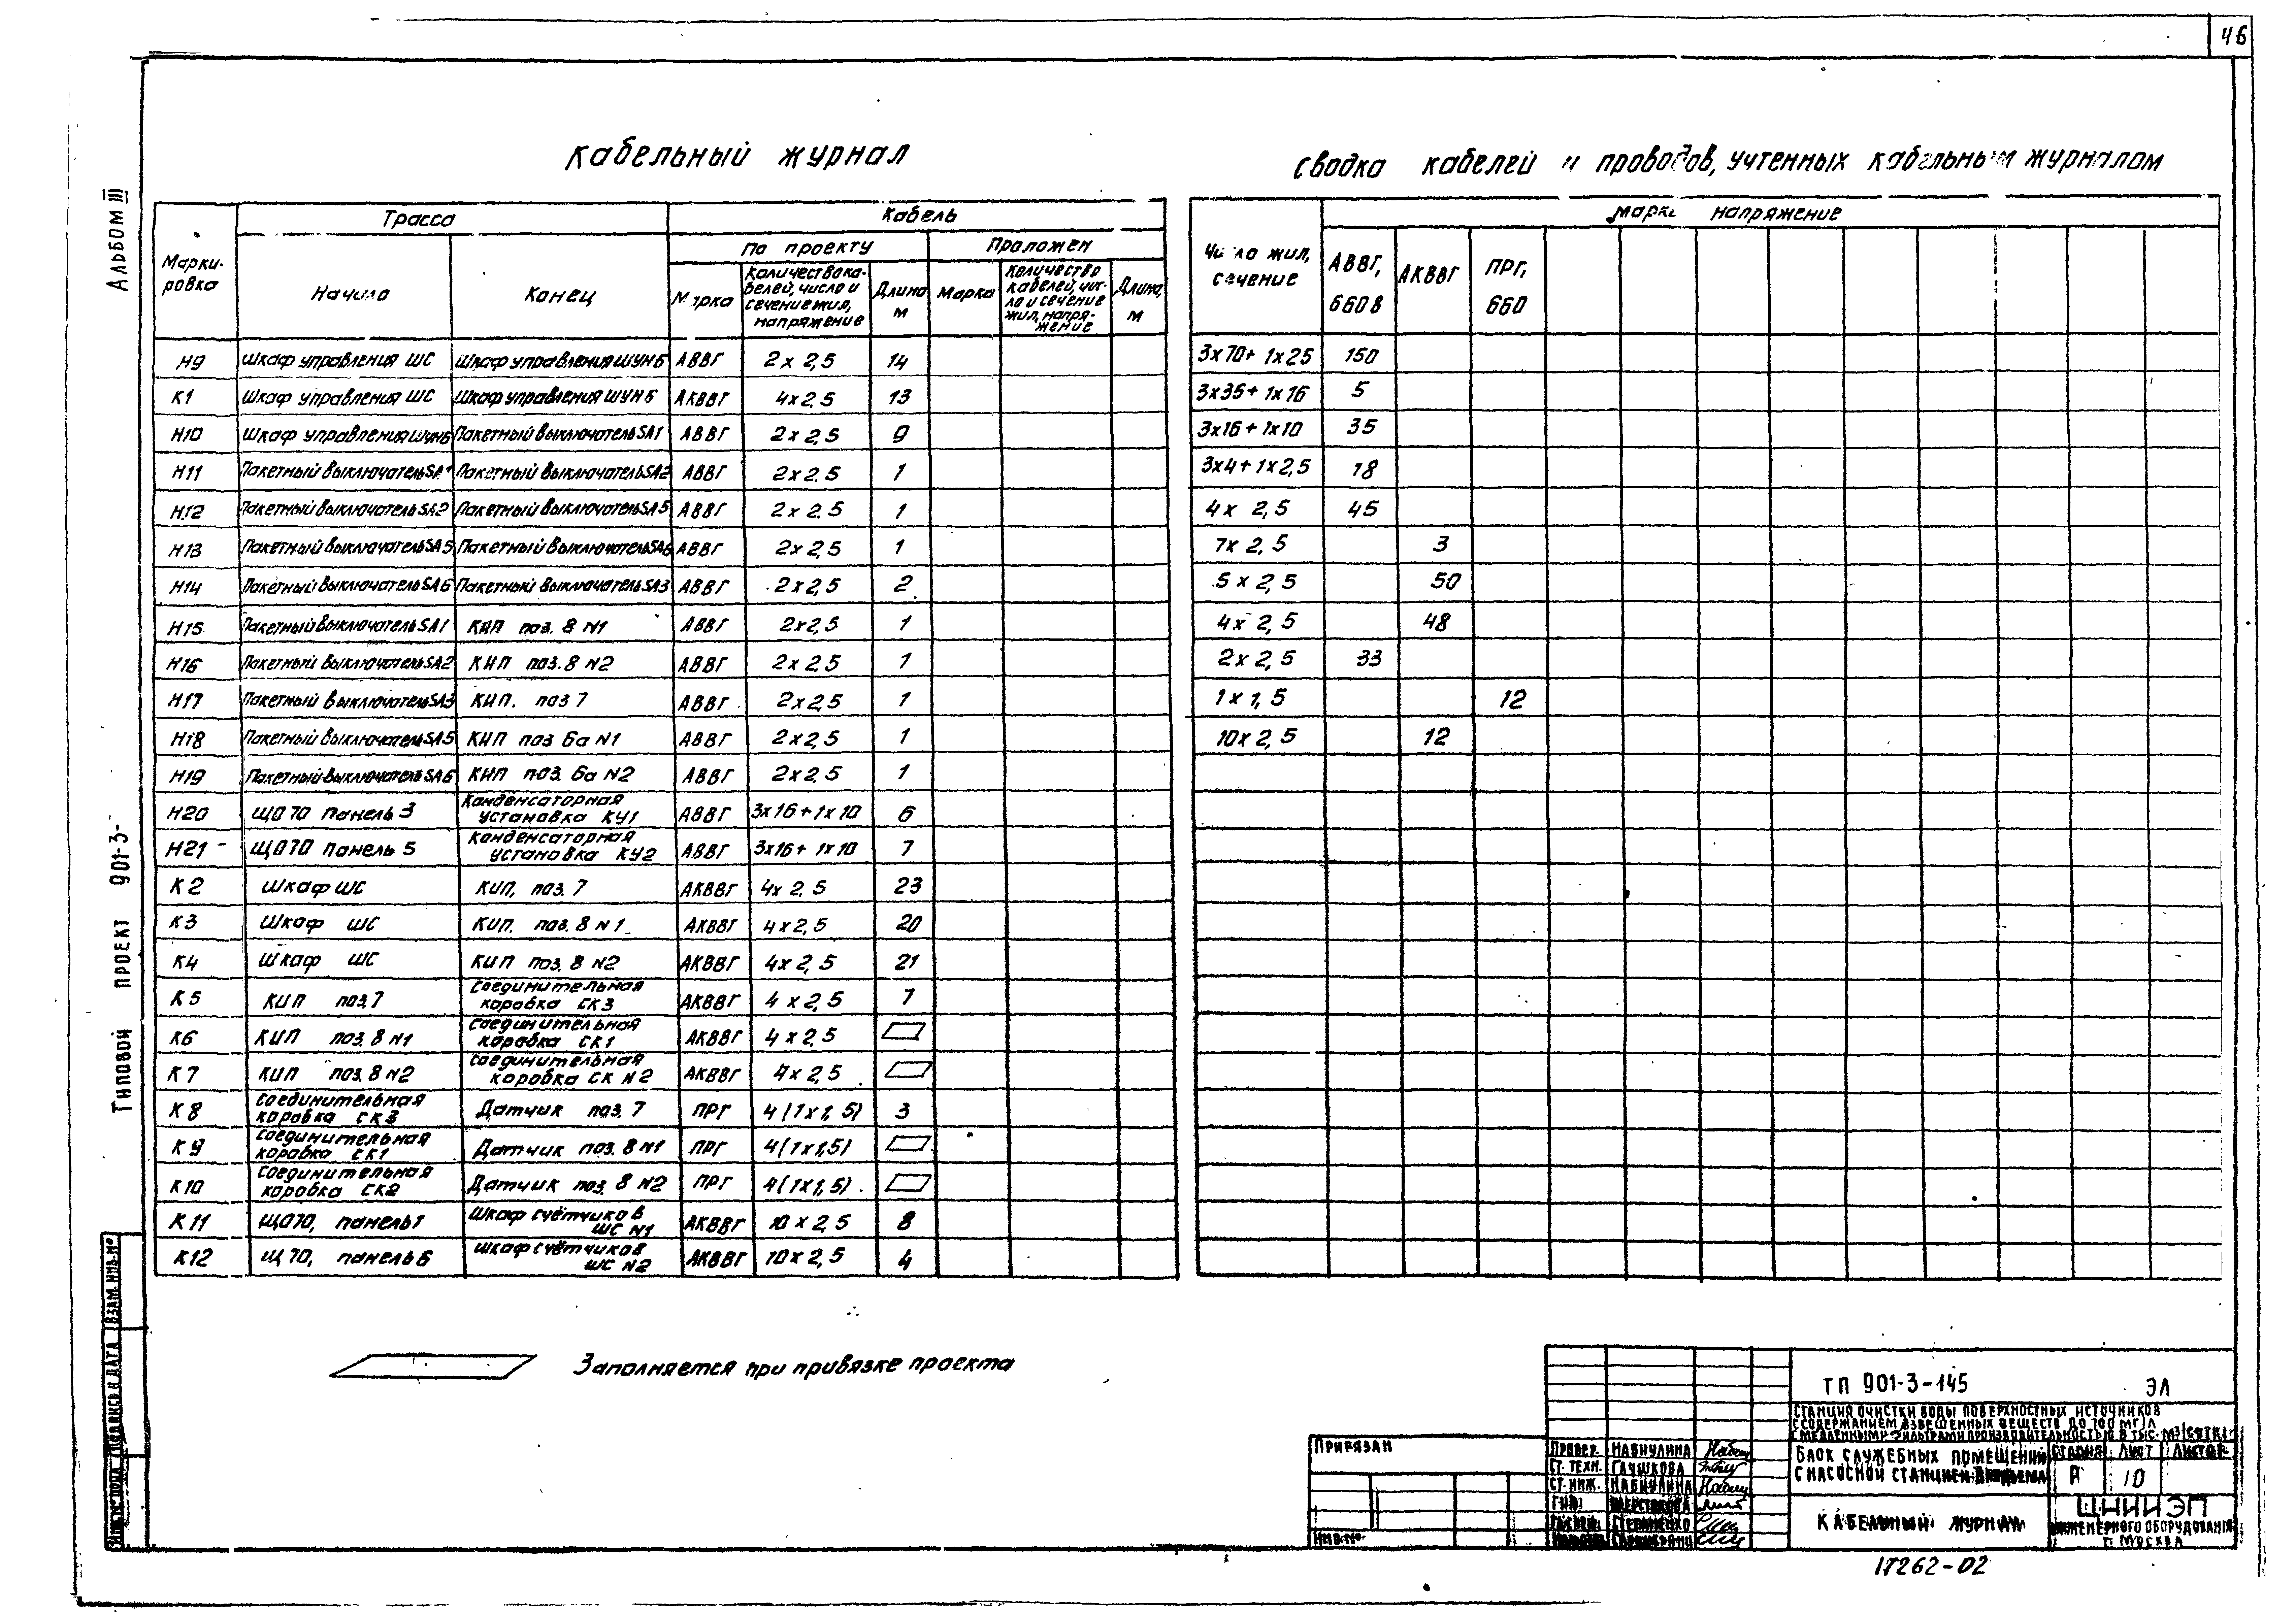 46
Альбом III
Типовой проект 901-3-
Кабельный журнал
Маркировка
Трасса
Кабель
Начало
Конец
По проекту
Проложен
Марка
Количество кабелей, число и сечение жил, напряжение
Длина м
Марка
Количество кабелей, число и сечение жил, напряжение
Длина, м
Н9 Шкаф управления ШС Шкаф управления ШУН6 АВВГ 2х2,5 14
К1 Шкаф управления ШС Шкаф управления ШУН6 АКВВГ 4х2,5 13
Н10 Шкаф управления ШУН6 Пакетный выключатель SA1 АВВГ 2х2,5 9
Н11 Пакетный выключатель SA1 Пакетный выключатель SA2 АВВГ 2х2.5 1
Н12 Пакетный выключатель SA2 Пакетный выключатель SA5 АВВГ 2х2.5 1
Н13 Пакетный выключатель SA5 Пакетный выключатель SA6 АВВГ 2х2,5 1
Н14 Пакетный выключатель SA6 Пакетный выключатель SA3 АВВГ 2х2,5 2
Н15 Пакетный выключатель SA1 КИП поз. 8 N1 АВВГ 2х2,5 1
Н16 Пакетный выключатель SA2 КИП поз. 8 N2 АВВГ 2х2,5 1
Н17 Пакетный выключатель SA3 КИП. поз 7 АВВГ 2х2,5 1
Н18 Пакетный выключатель SA5 КИП поз 6а N1 АВВГ 2х2,5 1
Н19 Пакетный выключатель SA6 КИП поз. 6а N2 АВВГ 2х2.5 1
Н20 ЩО70 панель 3 Конденсаторная установка КУ1 АВВГ 3х16+1х10 6
Н21 ЩО70 панель 5 Конденсаторная установка КУ2 АВВГ 3х16+1х10 7
К2 Шкаф ШС КИП. поз. 7 АКВВГ 4х2,5 23
К3 Шкаф ШС КИП. поз. 8 N1 АКВВГ 4х2,5 20
К4 Шкаф ШС КИП поз. 8 N2 АКВВГ 4х2,5 21
К5 КИП поз.7 Соединительная коробка СК3 АКВВГ 4х2,5 7
К6 КИП поз. 8 N1 Соединительная коробка СК1 АКВВГ 4х2,5
К7 КИП поз. 8 N2 Соединительная коробка СК N2 АКВВГ 4х2,5
К8 Соединительная коробка СК3 Датчик поз. 7 ПРГ 4(1х1,5) 3
К9 Соединительная коробка СК1 Датчик поз. 8 N1 ПРГ 4(1х1,5)
К10 Соединительная коробка СК2 Датчик поз. 8 N2 ПРГ 4(1х1,5)
К11 ЩО70, панель 1 Шкаф счётчиков ШС N1 АКВВГ 10х2,5 8
К12 Щ 70, панель 6 Шкаф счётчиков ШС N2 АКВВГ 10х2,5 4
Заполняется при привязке проекта
Сводка кабелей и проводов, учтенных кабельным журналом
Число жил, сечение
Марка напряжение
АВВГ, 660 В
АКВВГ
ПРГ, 660
3х70+1х25 150
3х35+1х16 5
3х16+1х10 35
3х4+1х2,5 18
4х2,5 45
7х2,5 3
5х2,5 50
4х2,5 48
2х2,5 33
1х1,5 12
10х2,5 12
Взам. инв. №
Подпись и дата
Привязан
Инв. №
Провер. Набиулина
Ст. техн. Глушкова
Ст. инж. Набиулина
ГИП
Степаненко
ТП 901-3-145 ЭЛ
Станция очистки воды поверхностных источников
с содержанием взвешенных веществ до 700 мг/л
Блок служебных помещений
с насосной станцией
Стадия Лист Листов
Р 10
Кабельный журнал
ЦНИИЭП
инженерного оборудования
г. Москва
17262-02